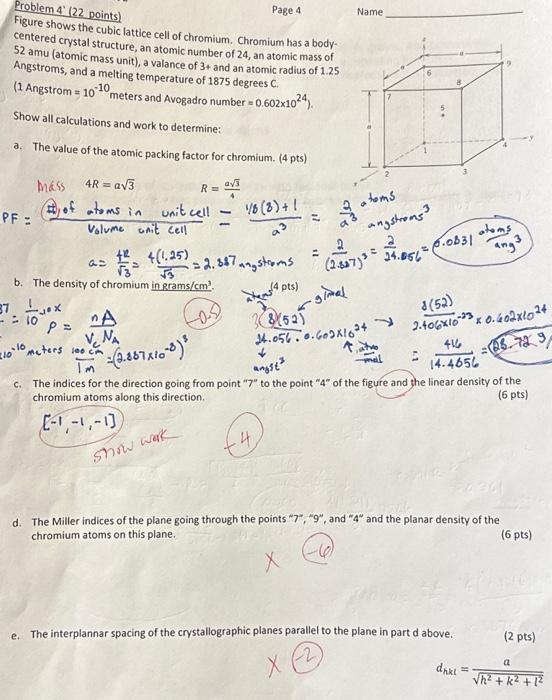 Problem 4' (22 points)
Page 4
Name
Figure shows the cubic lattice cell of chromium. Chromium has a body-
centered crystal structure, an atomic number of 24, an atomic mass of
52 amu (atomic mass unit), a valance of 3+ and an atomic radius of 1.25
Angstroms, and a melting temperature of 1875 degrees C.
(1 Angstrom = 10^-10 meters and Avogadro number = 0.602x10^24).
Show all calculations and work to determine:
z
a
a
a
6
9
8
7
5
1
4
y
2
3
x
a. The value of the atomic packing factor for chromium. (4 pts)
mass 4R = a√3 R = a√3/4
PF = # of atoms in unit cell / Volume unit cell = 1/8(8)+1 / a^3 = 2 atoms / a^3 angstroms^3
a = 4R/√3 = 4(1.25)/√3 = 2.887 angstroms = 2/(2.887)^3 = 2/24.056 = 0.0831 atoms/ang^3
b. The density of chromium in grams/cm^3. (4 pts)
-0.5
ρ = nA / Vc NA
atoms g/mol
8(52) / 24.056 · 0.602x10^24 → 8(52) / 2.406x10^-23 x 0.602x10^24
angst^3
10^-10 meters 100 cm / 1 m = (2.887x10^-8)^3
= 416 / 14.4856 = 28.72 g/
c. The indices for the direction going from point "7" to the point "4" of the figure and the linear density of the
chromium atoms along this direction. (6 pts)
[-1,-1,-1]
show work
-4
d. The Miller indices of the plane going through the points "7", "9", and "4" and the planar density of the
chromium atoms on this plane. (6 pts)
X -6
e. The interplannar spacing of the crystallographic planes parallel to the plane in part d above. (2 pts)
X -2
d_hkl = a / √h^2 + k^2 + l^2